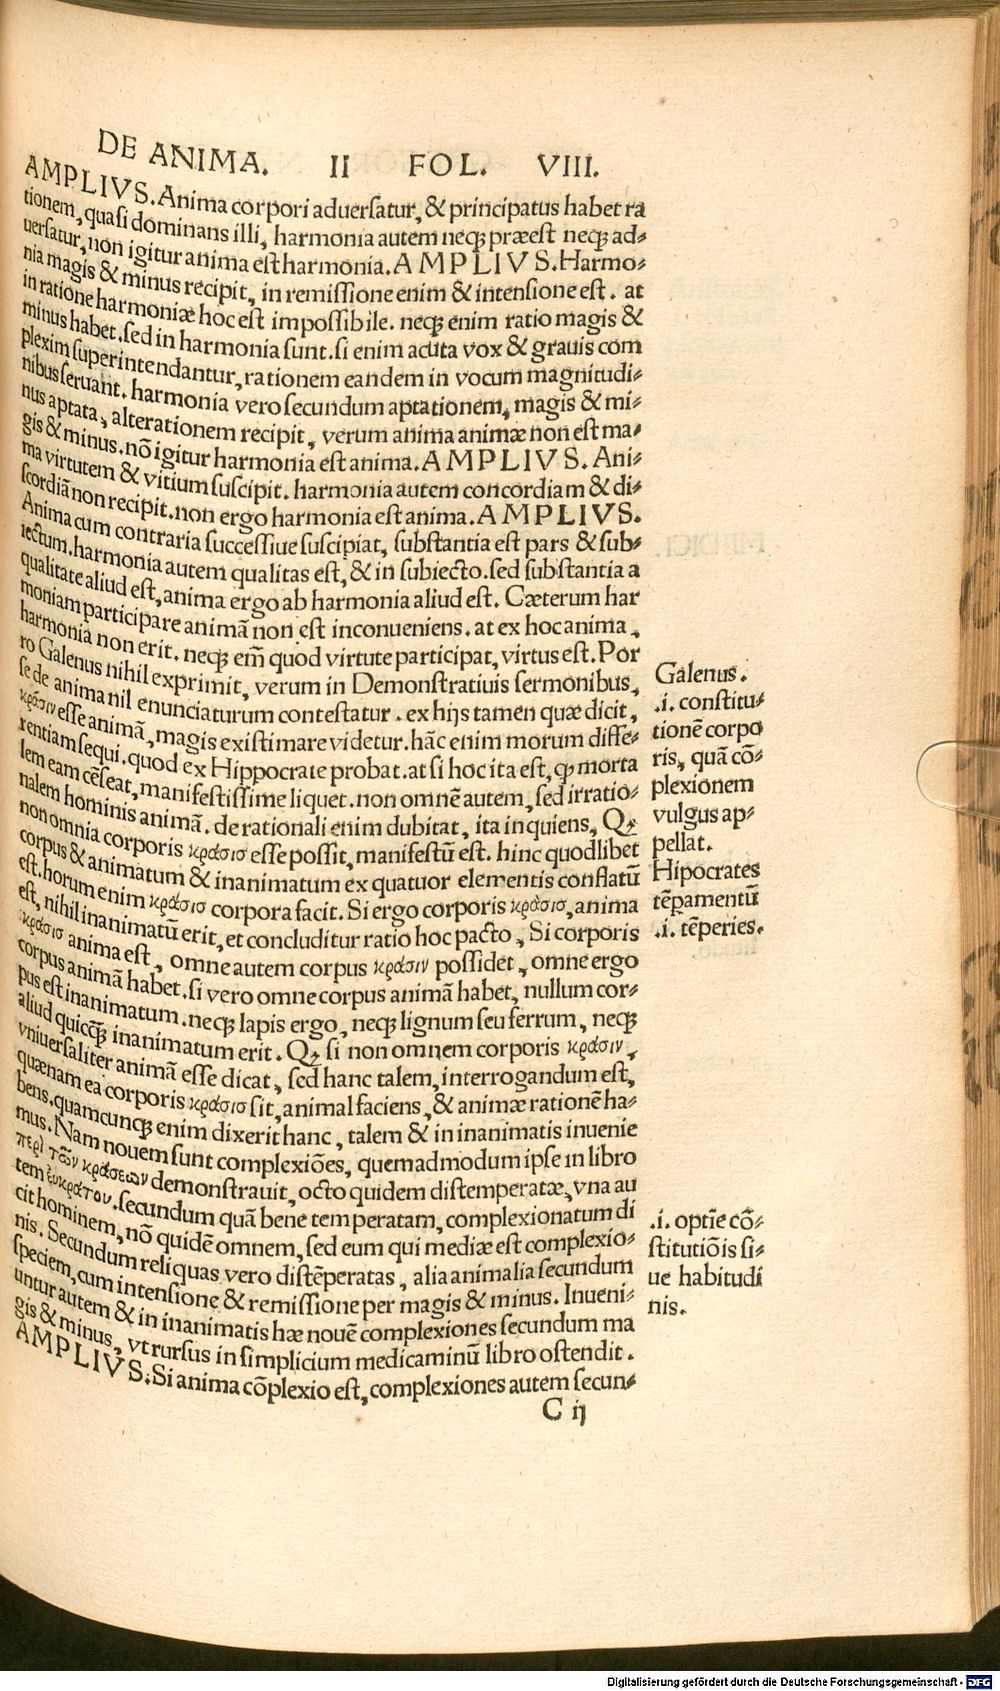 DE ANIMA. II FOL. VIII.
AMPLIVS. Anima corpori aduersatur, & principatus habet ra
tionem, quasi dominans illi, harmonia autem neqꝫ præest neqꝫ ad⸗
uersatur, non igitur anima est harmonia. AMPLIVS. Harmo⸗
nia magis & minus recipit, in remissione enim & intensione est. at
in ratione harmoniæ hoc est impossibile. neqꝫ enim ratio magis &
minus habet. sed in harmonia sunt. si enim acuta vox & grauis com
plexim superintendantur, rationem eandem in vocum magnitudi⸗
nibus seruant. harmonia vero secundum aptationem, magis & mi⸗
nus aptata, alterationem recipit, verum anima animæ non est ma⸗
gis & minus. nõ igitur harmonia est anima. AMPLIVS. Ani⸗
ma virtutem & vitium suscipit. harmonia autem concordiam & di⸗
scordiã non recipit. non ergo harmonia est anima. AMPLIVS.
Anima cum contraria successiue suscipiat, substantia est pars & sub⸗
iectum. harmonia autem qualitas est, & in subiecto. sed substantia a
qualitate aliud est, anima ergo ab harmonia aliud est. Cæterum har
moniam participare animã non est inconueniens. at ex hoc anima,
harmonia non erit. neqꝫ em̃ quod virtute participat, virtus est. Por
ro Galenus nihil exprimit, verum in Demonstratiuis sermonibus,
se de anima nil enunciaturum contestatur. ex hijs tamen quæ dicit,
κρᾶσιν esse animã, magis existimare videtur. hãc enim morum diffe⸗
rentiam sequi. quod ex Hippocrate probat. at si hoc ita est, ꝙ morta
lem eam cẽseat, manifestissime liquet. non omnẽ autem, sed irratio⸗
nalem hominis animã. de rationali enim dubitat, ita inquiens, Qꝫ
non omnia corporis κρᾶσισ esse possit, manifestũ est. hinc quodlibet
corpus & animatum & inanimatum ex quatuor elementis conflatũ
est. horum enim κρᾶσισ corpora facit. Si ergo corporis κρᾶσισ, anima
est, nihil inanimatũ erit, et concluditur ratio hoc pacto, Si corporis
κρᾶσισ anima est, omne autem corpus κρᾶσιν possidet, omne ergo
corpus animã habet. si vero omne corpus animã habet, nullum cor⸗
pus est inanimatum. neqꝫ lapis ergo, neqꝫ lignum seu ferrum, neqꝫ
aliud quicqꝫ inanimatum erit. Qꝫ si non omnem corporis κρᾶσιν,
vniuersaliter animã esse dicat, sed hanc talem, interrogandum est,
quænam ea corporis κρᾶσισ sit, animal faciens, & animæ rationẽ ha⸗
bens. quamcunqꝫ enim dixerit hanc, talem & in inanimatis inuenie
mus. Nam nouem sunt complexiões, quemadmodum ipse in libro
περὶ τῶν κράσεων demonstrauit, octo quidem distemperatæ, vna au
tem ἐυκράτου. secundum quã bene temperatam, complexionatum di
cit hominem, nõ quidẽ omnem, sed eum qui mediæ est complexio⸗
nis. Secundum reliquas vero distẽperatas, alia animalia secundum
speciem, cum intensione & remissione per magis & minus. Inueni⸗
untur autem & in inanimatis hæ nouẽ complexiones secundum ma
gis & minus, vt rursus in simplicium medicaminũ libro ostendit.
AMPLIVS. Si anima cõplexio est, complexiones autem secun⸗
C ij
Galenus.
.i. constitu⸗
tionẽ corpo
ris, quã cõ⸗
plexionem
vulgus ap⸗
pellat.
Hipocrates
tẽꝑamentũ
.i. tẽperies.
.i. optĩe cõ⸗
stitutiõis si⸗
ue habitudi
nis.
Digitalisierung gefördert durch die Deutsche Forschungsgemeinschaft - DFG